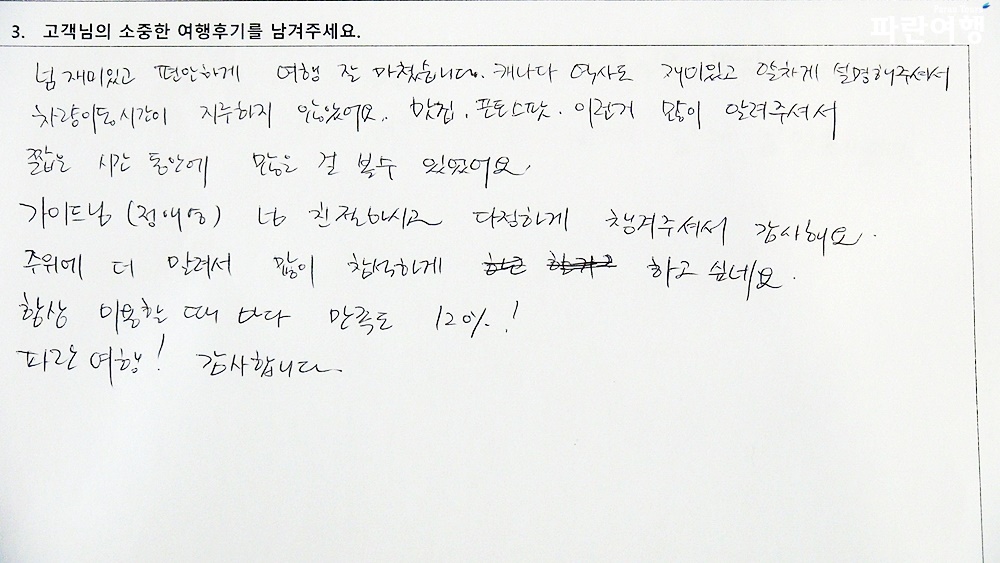 파란여행
3. 고객님의 소중한 여행후기를 남겨주세요.
넘 재미있고 편안하게 여행 잘 마쳤습니다. 캐나다 역사도 재미있고 알차게 설명해주셔서
차량이동시간이 지루하지 않았어요. 맛집. 포토스팟. 이런거 많이 알려주셔서
짧은 시간 동안에 많은 걸 볼수 있었어요.
가이드님 (정애영) 넘 친절하시고 다정하게 챙겨주셔서 감사해요.
주위에 더 알려서 많이 참석하게 하고 싶네요.
항상 이용할 때 마다 만족도 120%!
파란 여행! 감사합니다